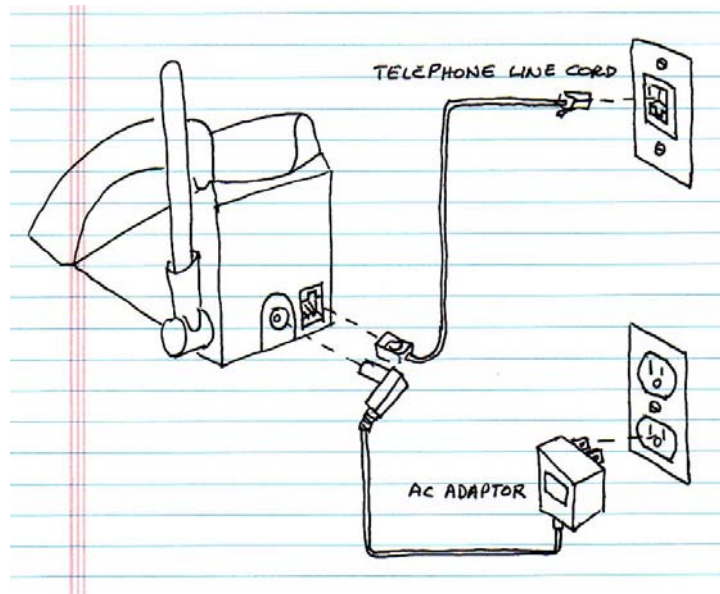 TELEPHONE LINE CORD
AC ADAPTOR